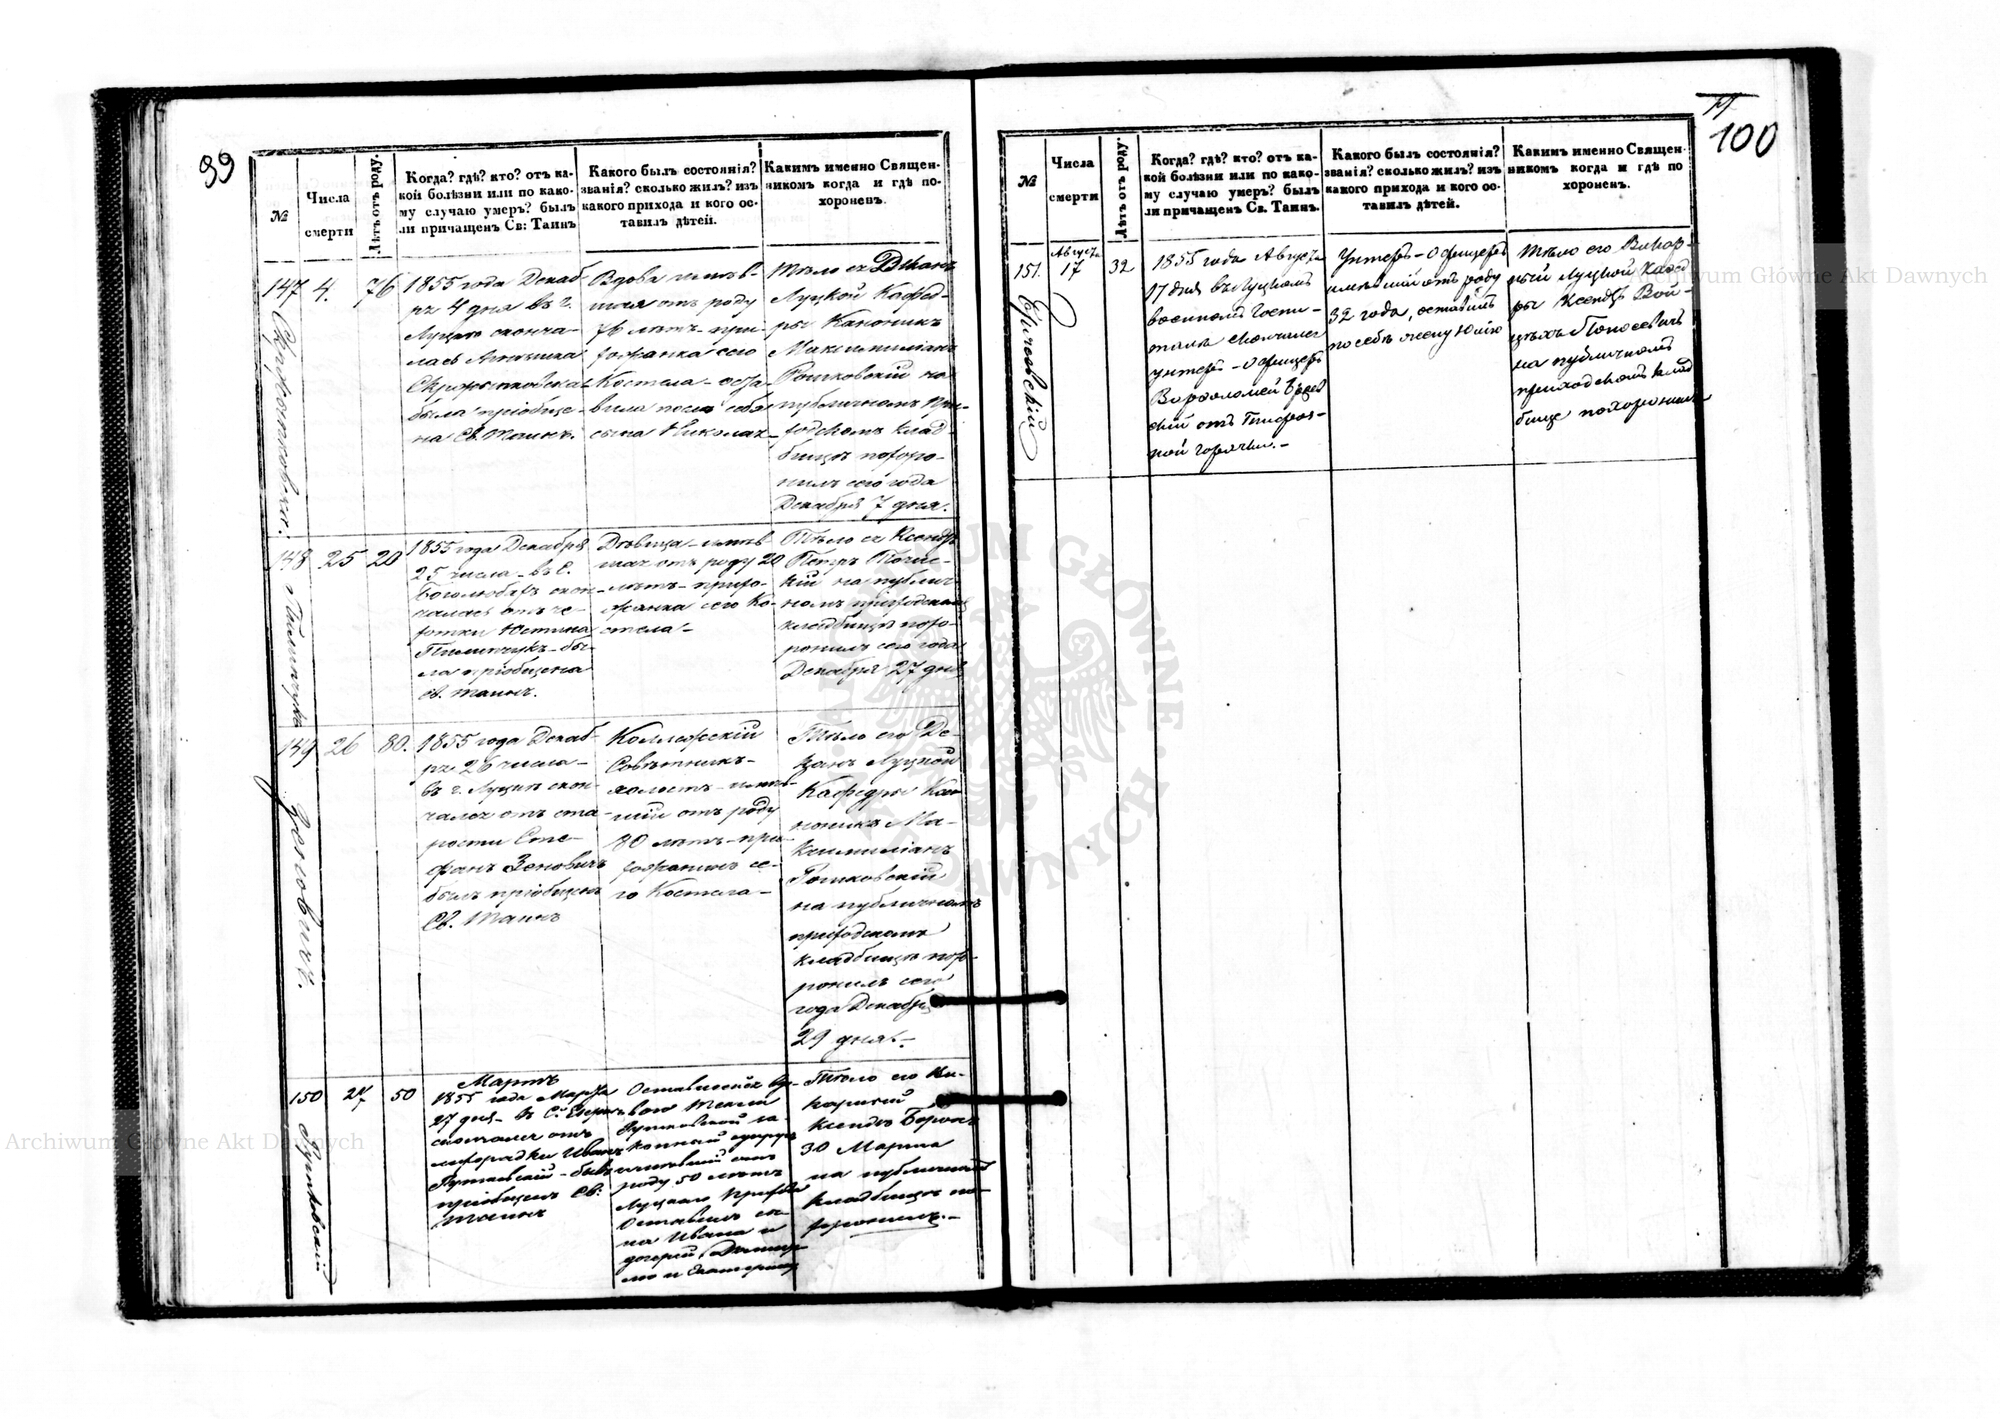 99
№
Числа
смерти
Лѣтъ отъ роду.
Когда? гдѣ? кто? отъ ка-
кой болѣзни или по како-
му случаю умеръ? былъ
ли причащенъ Св: Таинъ
Какого былъ состоянія?
званія? сколько жилъ? изъ
какого прихода и кого ос-
тавилъ дѣтей.
Каким​ъ именно Священ-
никомъ когда и гдѣ по-
хороненъ.
147
4.
76
1855 года Декаб-
ря 4 дня въ г.
Луцкѣ сконча-
лась
была пріобще-
на Св. Таинъ.
Вдова имѣв-
шая отъ роду
76 лѣтъ - при-
хожанка сего
Костела - оста
вила после себя
сына Николая
Тѣло ея Деканъ
Луцкой Кафед-
ры Каноникъ
Максимиліанъ
на
публичномъ при-
ходскомъ клад-
бищѣ похоро-
нилъ сего года
Декабря 7 дня.
148
25
20
1855 года Декабря
25 числа - въ с.
Боголюбахъ скон-
чалась отъ че-
хотки Юстина
Пилипчукъ - бы-
ла пріобщена
св. Таинъ.
Дѣвица - имѣв
шая отъ роду 20
лѣтъ - прихо-
жанка сего Ко-
стела -
Тѣло ея Ксендзъ
Петръ
на публич-
номъ приходскомъ
кладбищѣ похо-
ронилъ сего года
Декабря 27 дня
149
26
80.
Зеновичъ.
1855 года Декаб-
ря 26 числа -
въ г. Луцкѣ скон-
чался отъ ста-
рости Сте-
фанъ Зеновичъ
былъ пріобщенъ
Св. Таинъ
Коллежскій
Совѣтникъ -
холостъ - имѣв-
шій отъ роду
80 лѣтъ - при-
хожанинъ се-
го Костела -
Тѣло его Де-
канъ Луцкой
Кафедры Кан
оникъ Ма-
ксимиліанъ
на публичномъ
приходскомъ
кладбищѣ похо-
ронилъ сего
года Декабря
29 дня. -
150
27
50
Мартъ
1855 года Марта
27 дня - въ С.
скончался отъ
лихорадки Иванъ
- былъ
пріобщенъ Св:
Таинъ
законный супругъ
имѣвшій отъ
роду 50 лѣтъ
Луцкаго прихода
Оставилъ сы-
на Ивана и
дочерей
и Екатерину
Тѣло его Ви-
карный
Ксендзъ
30 Марта
на публичномъ
кладбищѣ по-
хоронилъ. -
100
№
Числа
смерти
Лѣтъ отъ роду.
Когда? гдѣ? кто? отъ ка-
кой болѣзни или по како-
му случаю умеръ? былъ
ли причащенъ Св. Таинъ.
Какого былъ состоянія?
званія? сколько жилъ? изъ
какого прихода и кого ос-
тавилъ дѣтей.
Какимъ именно Священ-
никомъ когда и гдѣ по
хороненъ.
151.
Августа
17
32
1855 года Августа
17 дня въ Луцкомъ
военномъ Госпи-
талѣ скончался
унтеръ-офицеръ
Варѳоломей
отъ Тифоз-
ной горячки. -
Унтеръ-офицеръ
имѣвшій отъ роду
32 года, оставилъ
по себѣ жену Юлію
Тѣло его Викар-
ный Луцкой Кафед
ры Ксендзъ Вой-
цѣхъ
на публичномъ
приходскомъ клад
бище похоронилъ
Archiwum Główne Akt Dawnych
Archiwum Główne Akt Dawnych
ARCHIWUM GŁÓWNE AKT DAWNYCH